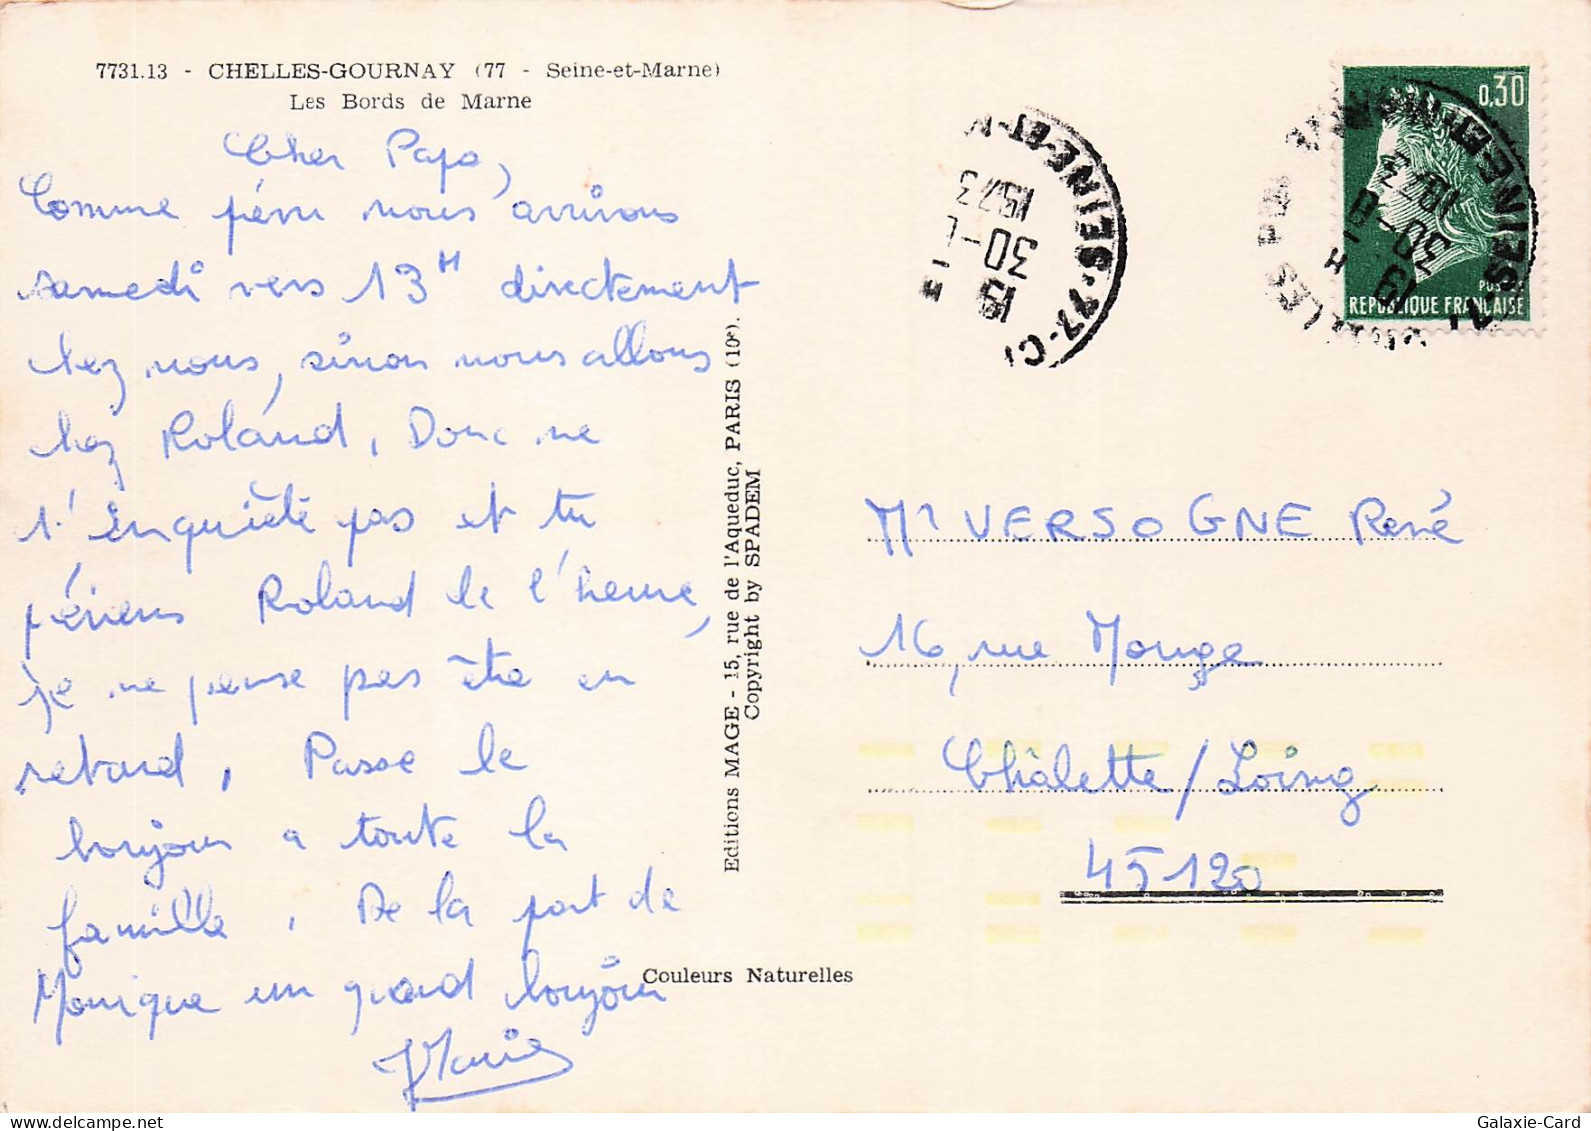 7731.13 - CHELLES-GOURNAY (77 - Seine-et-Marne)
Les Bords de Marne
Cher Papa,
Comme prévu nous arrivons
samedi vers 13H directement
chez nous, sinon nous allons
chez Roland, Donc ne
t'enquiète pas et tu
préviens Roland de l'heure,
je ne pense pas être en
retard, Passe le
bonjour a toute la
famille, De la part de
Monique un grand bonjour
Editions MAGE - 15, rue de l'Aqueduc, PARIS (10e).
Copyright by SPADEM
Couleurs Naturelles
0,30
POSTES
REPUBLIQUE FRANÇAISE
77-SEINE-ET-M
19 H
30-
1973
Mr VERSOGNE René
16, rue Monge
Châlette/Loing
45120
Galaxie-Card